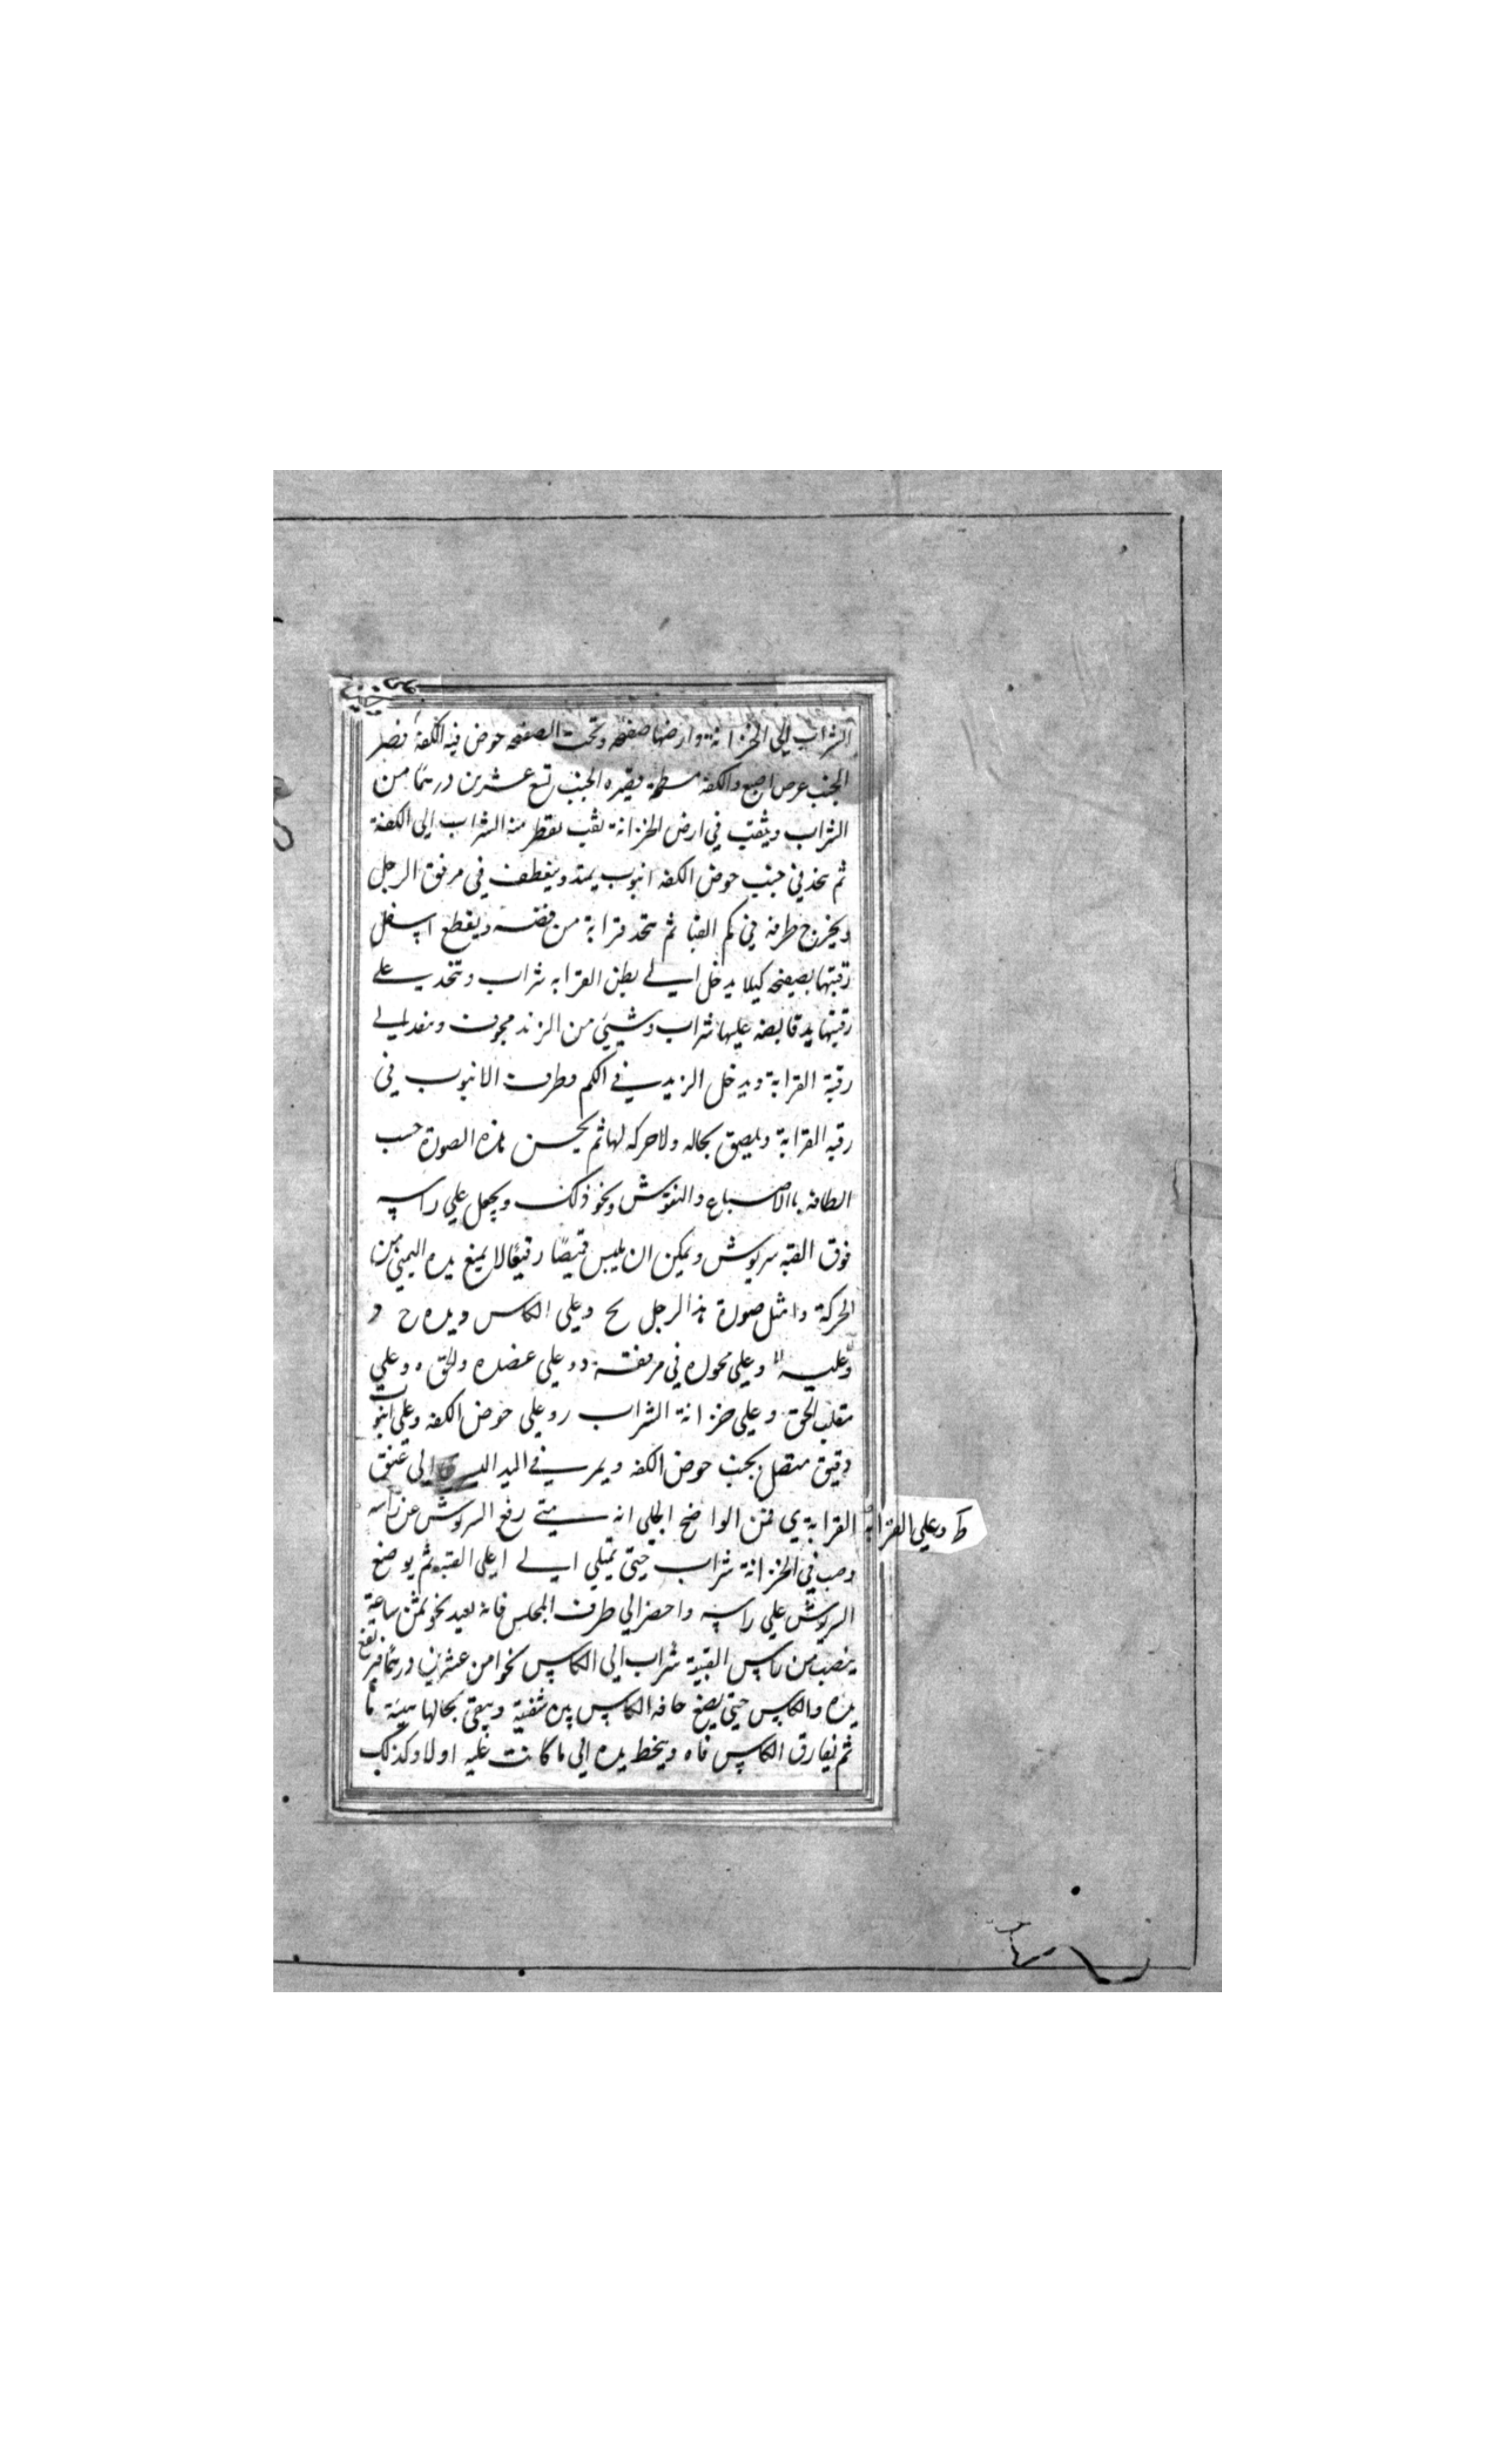 الشراب الى الخزانة وارضها صفحه وتحت الصفحه حوض فيه الكفه قصر
الجنب عرض اصبع والكفه قصيره الجنب تسع عشرين درهما من
الشراب ويثقب في ارض الخزانة ثقب يقطر منه الشراب الى الكفة
ثم يتخذ في جنب حوض الكفه انبوب يمتد وينعطف في مرفق الرجل
ويخرج طرفه في كم القبا ثم تتخذ قرابة من فضه ويقطع اسفل
رقبتها بصفيحه كيلا يدخل الي بطن القرابه شراب وتتخذ على
رقبتها يد قابضه عليها شراب وشيئ من الزند مجوف وينفد الي
رقبة القرابة ويدخل الزند في الكم وطرف الانبوب في
رقبه القرابة ويلصق بحاله ولا حركه لها ثم يحسن هذه الصورة حسب
الطاقه بالاصباع والنقوش ونحو ذلك ويجعل علي راسه
فوق القبه سرپوش ويمكن ان يلبس قميصا رقيقا لا يمنع يده اليمنى من
الحركة وامثل صورة هذا الرجل وعلى الكاس ويده ح د
وعليه وعلي محوره في مرفقه د وعلي عضده والحق ه وعلي
مقلب الحق وعلي خزانة الشراب ر وعلى حوض الكفه وعلى انبوب
دقيق متصل بجنب حوض الكفه ويمر في اليد اليسرى الى عنق
القرابة ط وعلي القرابة ي فمن الواضح الجلي انه متي رفع السرپوش عن راسه
وصب في الخزانة شراب حتى تمتلي الي اعلى القبه ثم يوضع
السرپوش علي راسه واحضر الي طرف المجلس فانه بعيد نحو ثمن ساعة
ينصب من راس القبة شراب الى الكاس نحوا من عشرين درهما فيرتفع
يده والكاس حتى يضع حافه الكاس بين شفتيه ويبقى بحالها هيئة ما
ثم يفارق الكاس فاه وينحط يده الى ما كانت عليه اولا وكذلك